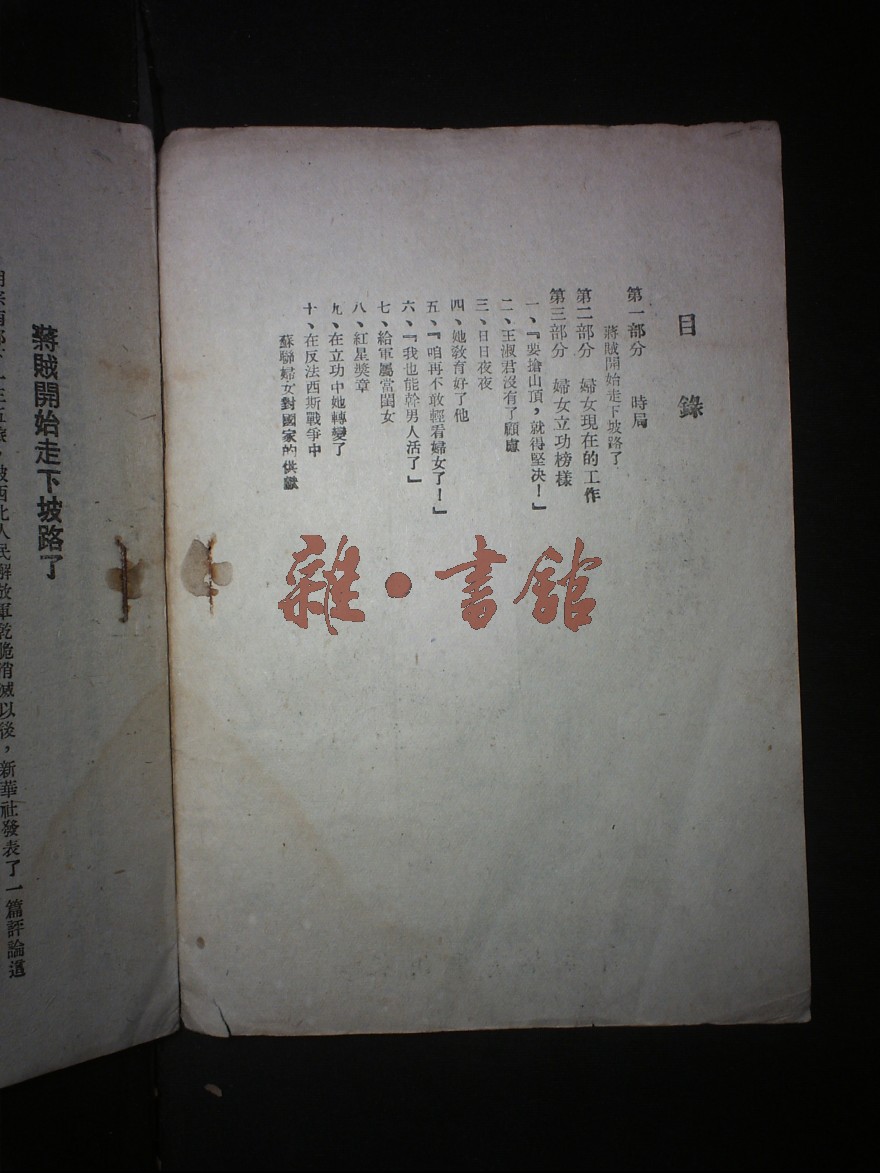 目 錄
第一部分 時局
蔣賊開始走下坡路了
第二部分 婦女現在的工作
第三部分 婦女立功榜樣
一、『要搶山頂，就得堅决！』
二、王淑君沒有了顧慮
三、日日夜夜
四、她敎育好了他
五、『咱再不敢輕看婦女了！』
六、『我也能幹男人活了』
七、給軍屬當閨女
八、紅星奬章
九、在立功中她轉變了
十、在反法西斯戰爭中
蘇聯婦女對國家的供獻
雜·書館
蔣賊開始走下坡路了
西北人民解放軍乾脆消滅以後，新華社發表了一篇評論這